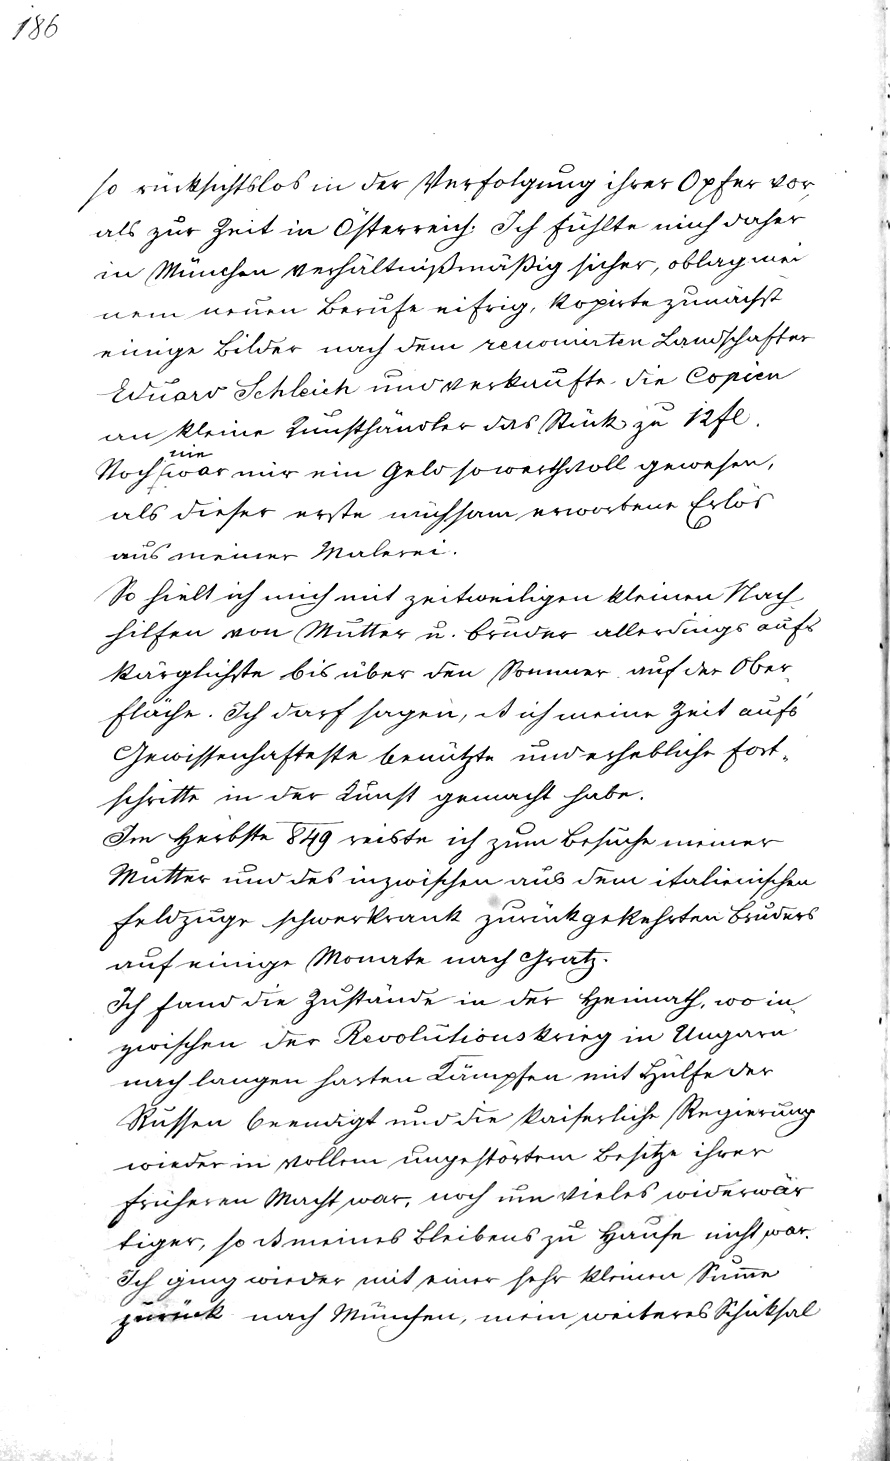 186
so rücksichtslos in der Verfolgung ihrer Opfer vor,
als zur Zeit in Österreich. Ich fühlte mich daher
in München verhältnißmäßig sicher, oblag mei
nem neuen Berufe eifrig, kopirte zunächst
einige Bilder nach dem renomirten Landschafter
Eduard Schleich und verkaufte die Copien
an kleine Kunsthändler das Stück zu 12 fl.
Noch nie war mir ein Geld so werthvoll gewesen,
als dieser erste mühsam erworbene Erlös
aus meiner Malerei.
So hielt ich mich mit zeitweiligen kleinen Nach
hilfen von Mutter u. Bruder allerdings aufs
kärglichste bis über den Sommer auf der Ober
fläche. Ich darf sagen, ich meine Zeit aufs
Gewissenhafteste benützte und erhebliche Fort„
schritte in der Kunst gemacht habe.
Im Herbste 849 reiste ich zum Besuche meiner
Mutter und des inzwischen aus dem italienischen
Feldzuge schwerkrank zurückgekehrten Bruders
auf einige Monate nach Gratz.
Ich fand die Zustände in der Heimath, wo in„
zwischen der Revolutionskrieg in Ungarn
nach langen harten Kämpfen mit Hülfe der
Russen beendigt und die kaiserliche Regierung
wieder in vollem ungestörtem Besitze ihrer
früheren Macht war, noch um vieles widerwär
tiger, so meines Bleibens zu Hause nicht war.
Ich ging wieder mit einer sehr kleinen Sum̅e
zurück nach München, mein weiteres Schiksal